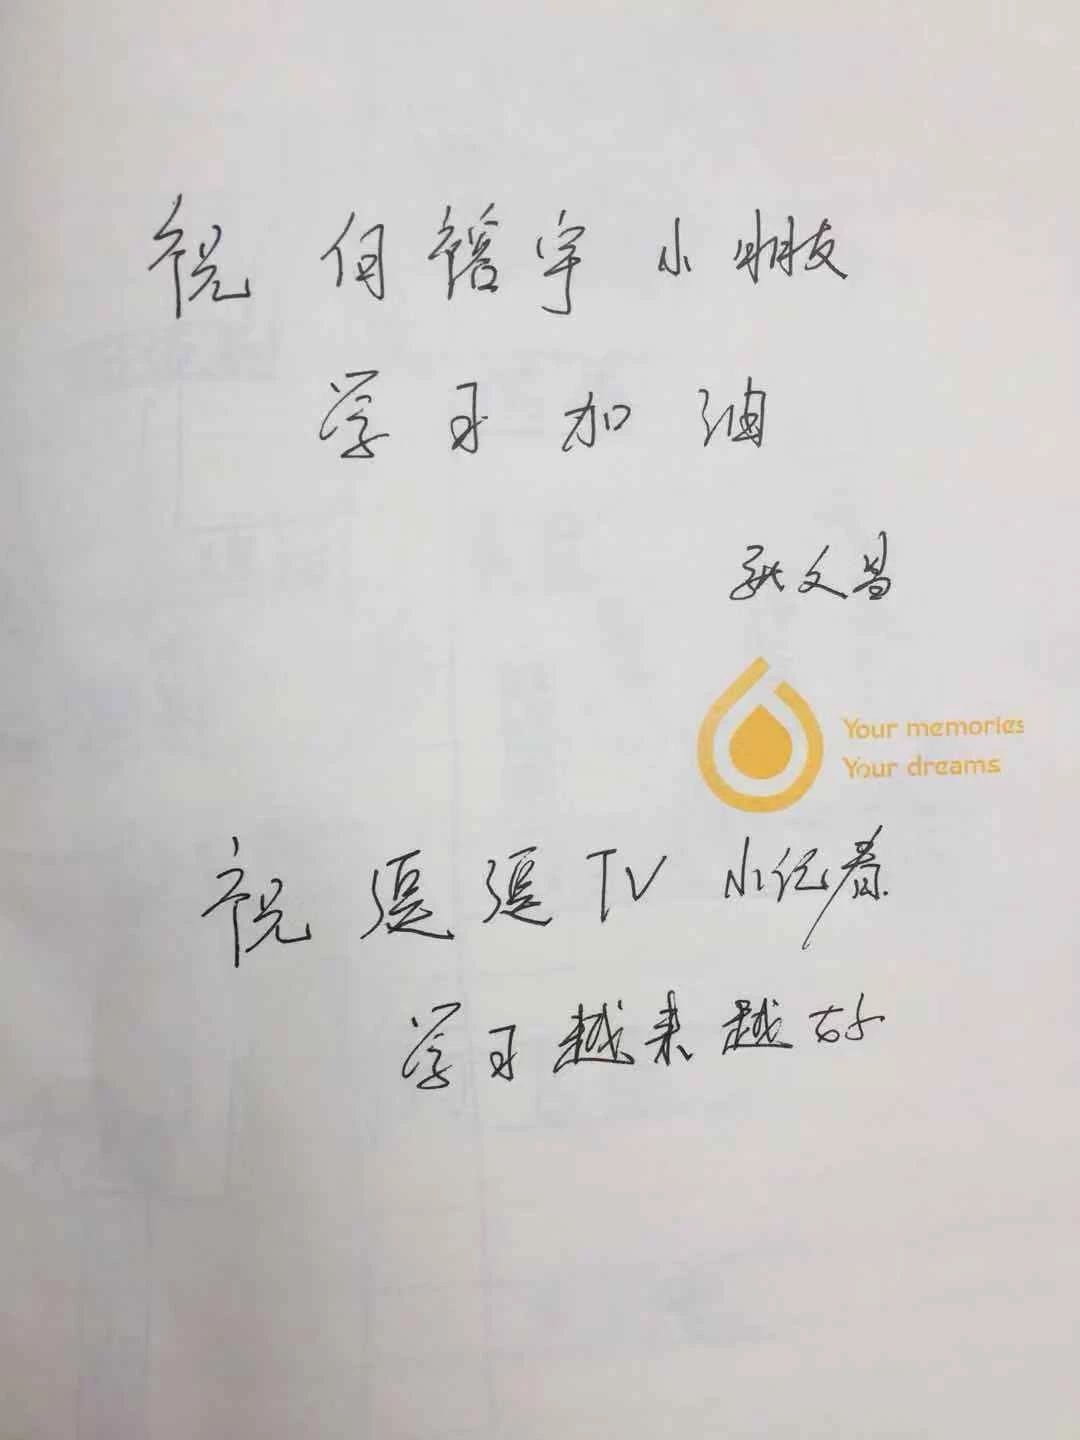 祝 何 宇 小朋友
学习加油
耿文昌
Your memories
Your dreams
祝逗逗TV小记者
学习越来越好